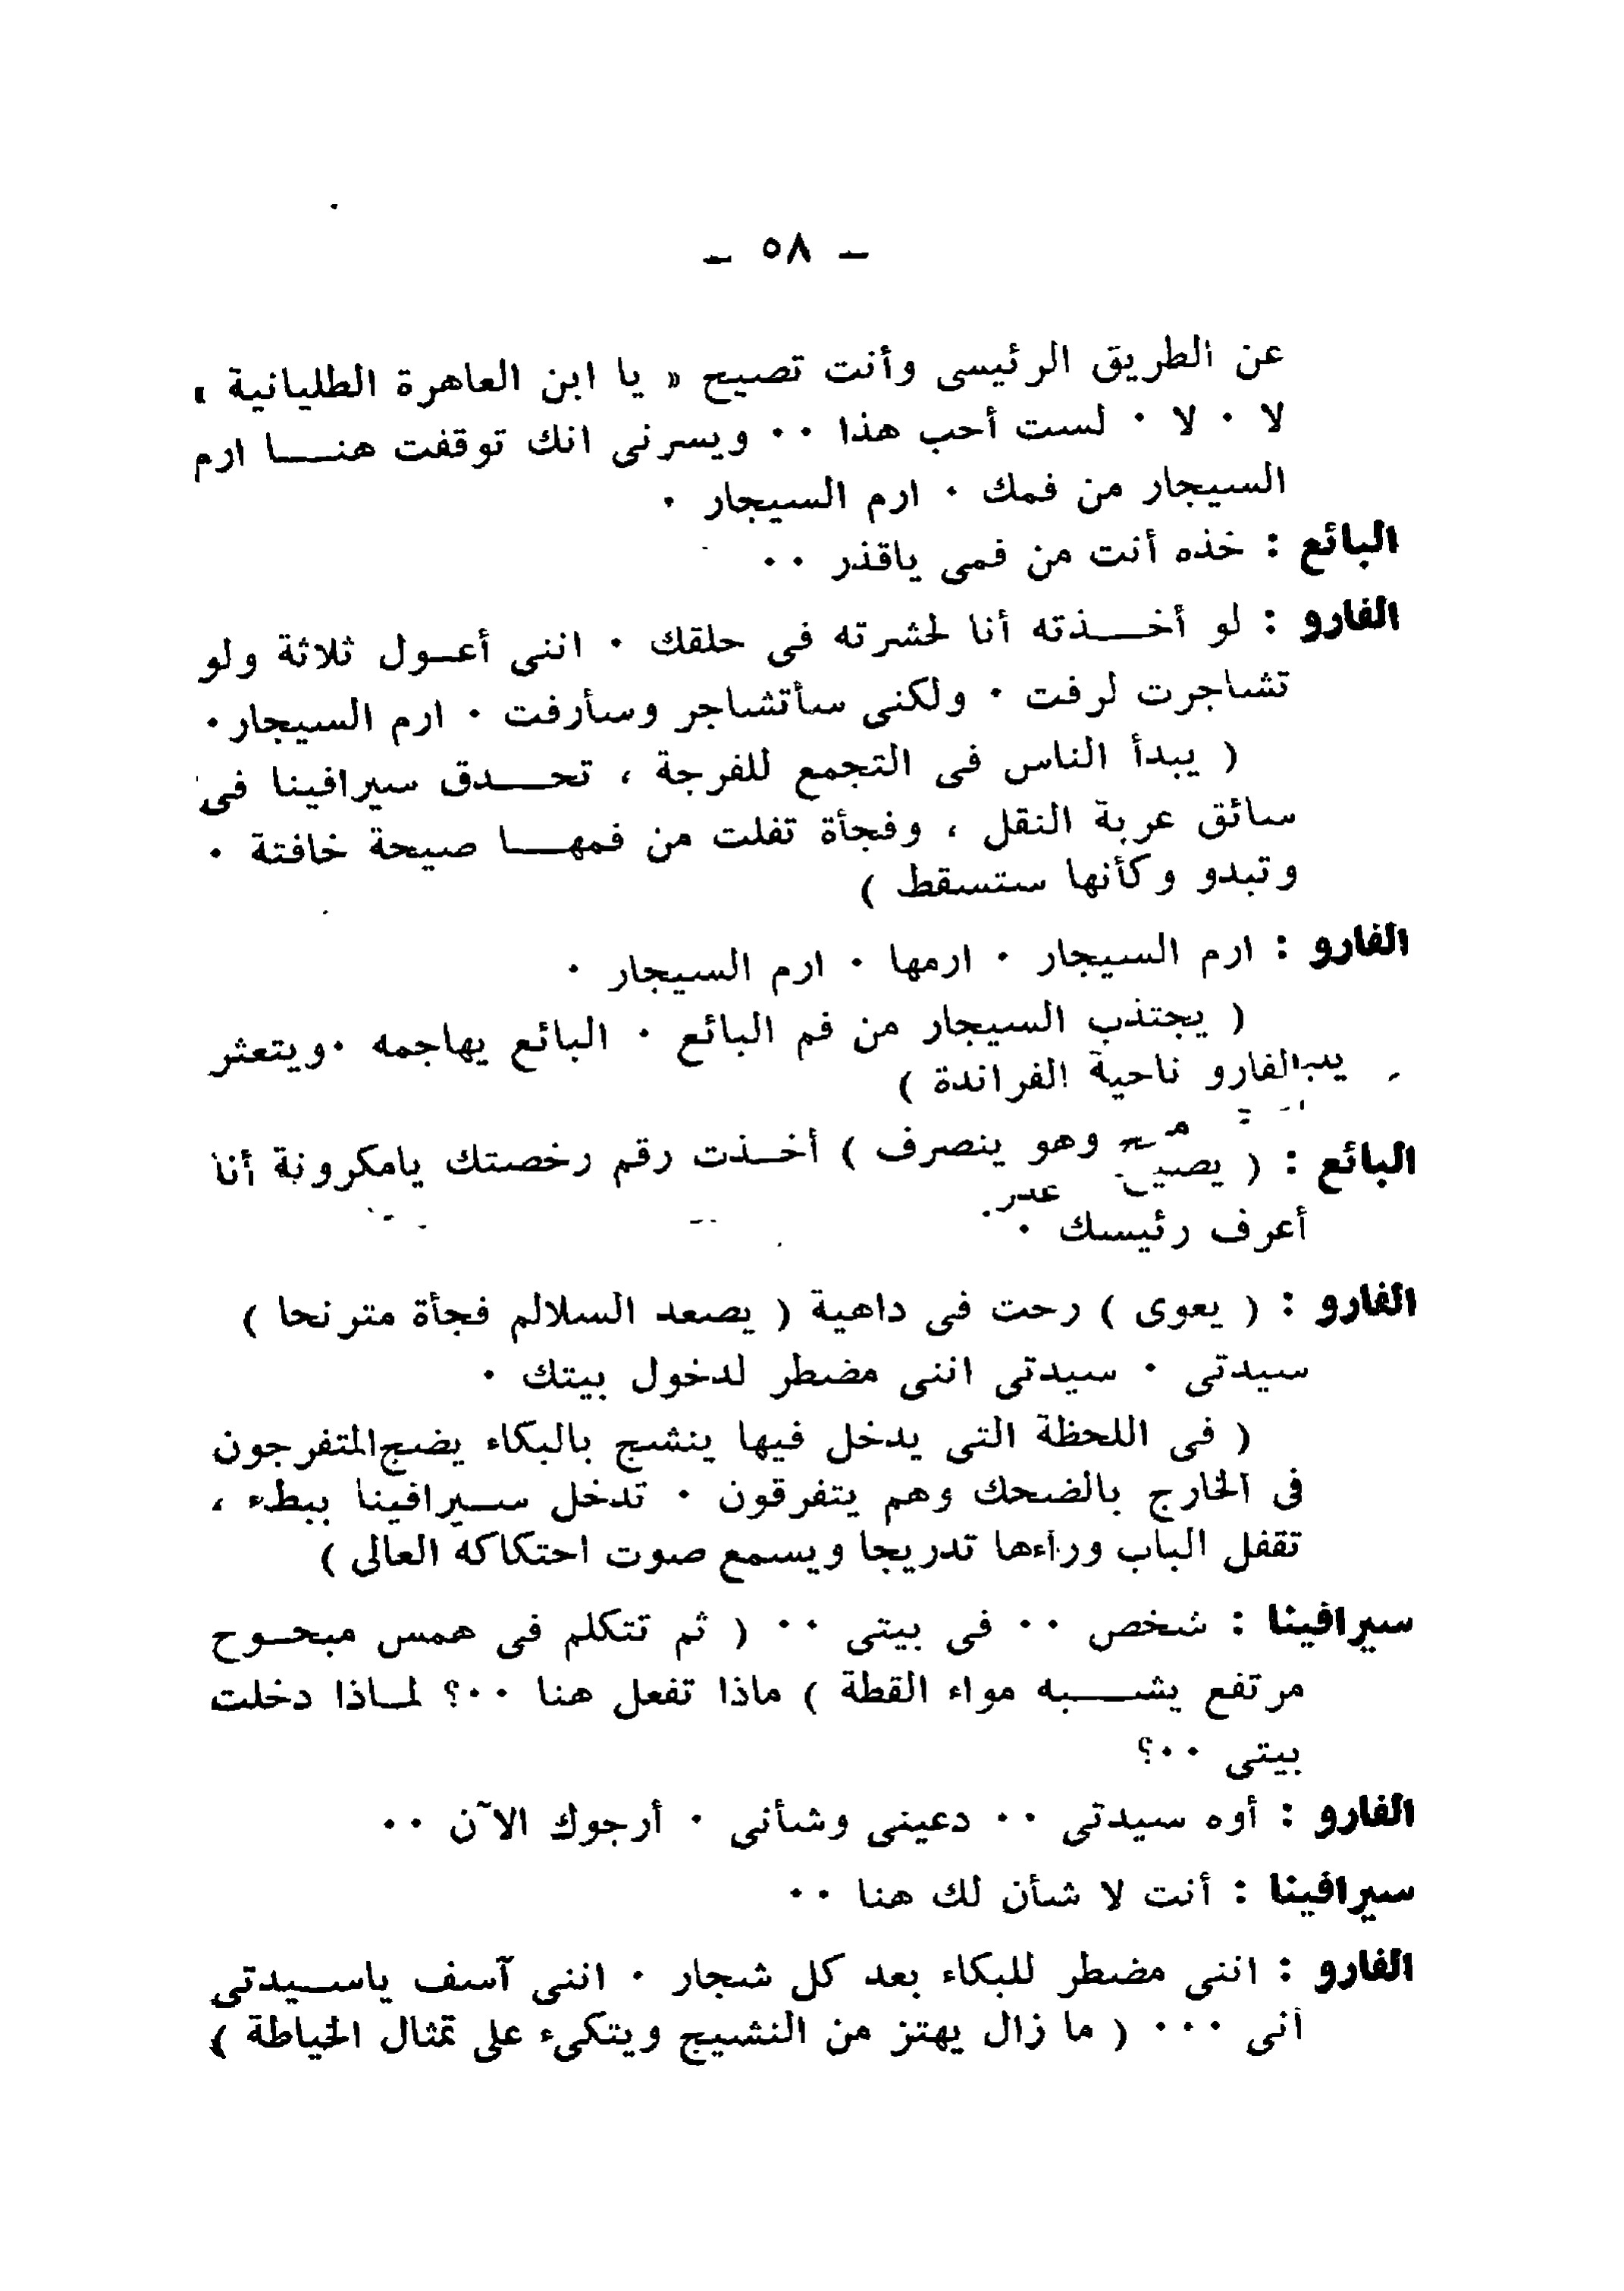 – ٥٨ –
عن الطريق الرئيسى وأنت تصيح « يا ابن العاهرة الطليانية »
لا ٠ لا ٠ لست أحب هذا ٠٠ ويسرنى انك توقفت هنا ارم
السيجار من فمك ٠ ارم السيجار ٠
البائع : خذه أنت من فمى ياقذر ٠٠
الفارو : لو أخذته أنا لحشرته فى حلقك ٠ اننى أعول ثلاثة ولو
تشاجرت لرفت ٠ ولكنى سأتشاجر وسأرفت ٠ ارم السيجار ٠
( يبدأ الناس فى التجمع للفرجة ، تحدق سيرافينا فى
سائق عربة النقل ، وفجأة تفلت من فمها صيحة خافتة ٠
وتبدو وكأنها ستسقط )
الفارو : ارم السيجار ٠ ارمها ٠ ارم السيجار ٠
( يجتذب السيجار من فم البائع ٠ البائع يهاجمه ٠ ويتعثر
الفارو ناحية الفراندة )
البائع : ( وهو ينصرف ) أخذت رقم رخصتك يامكرونة أنا
أعرف رئيسك ٠
الفارو : ( يعوى ) رحت فى داهية ( يصعد السلالم فجأة مترنحا )
سيدتى ٠ سيدتى اننى مضطر لدخول بيتك ٠
( فى اللحظة التى يدخل فيها ينشج بالبكاء يضج المتفرجون
فى الخارج بالضحك وهم يتفرقون ٠ تدخل سيرافينا ببطء ،
تقفل الباب وراءها تدريجا ويسمع صوت احتكاكه العالى )
سيرافينا : شخص ٠٠ فى بيتى ٠٠ ( ثم تتكلم فى همس مبحوح
مرتفع يشبه مواء القطة ) ماذا تفعل هنا ٠٠؟ لماذا دخلت
بيتى ٠٠؟
الفارو : أوه سيدتى ٠٠ دعينى وشأنى ٠ أرجوك الآن ٠٠
سيرافينا : أنت لا شأن لك هنا ٠٠
الفارو : اننى مضطر للبكاء بعد كل شجار ٠ اننى آسف ياسيدتى
انى ٠٠٠ ( ما زال يهتز من النشيج ويتكىء على تمثال الخياطة )